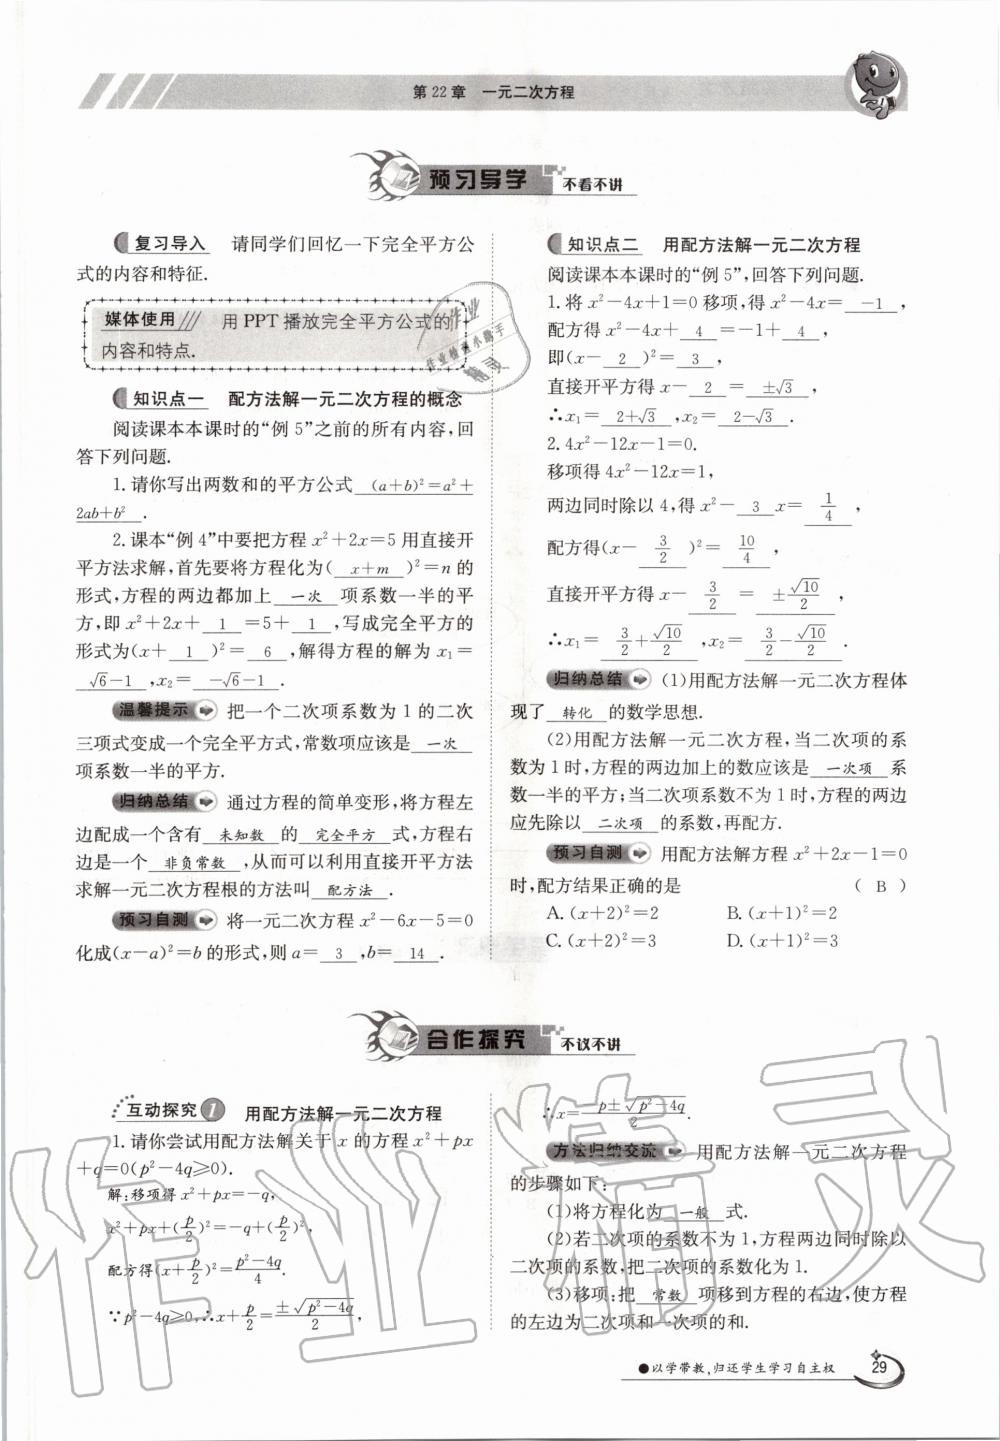 第22章 一元二次方程
预习导学 不看不讲
复习导入 请同学们回忆一下完全平方公
式的内容和特征.
媒体使用 用PPT播放完全平方公式的
内容和特点.
知识点一 配方法解一元二次方程的概念
阅读课本本课时的“例5”之前的所有内容,回
答下列问题.
1.请你写出两数和的平方公式 (a+b)²=a²+
2ab+b² .
2.课本“例4”中要把方程x²+2x=5用直接开
平方法求解,首先要将方程化为( x+m )²=n的
形式,方程的两边都加上 一次 项系数一半的平
方,即x²+2x+ 1 =5+ 1 ,写成完全平方的
形式为(x+ 1 )²= 6 ,解得方程的解为x₁=
√6-1 ,x₂= -√6-1 .
温馨提示 把一个二次项系数为1的二次
三项式变成一个完全平方式,常数项应该是 一次
项系数一半的平方.
归纳总结 通过方程的简单变形,将方程左
边配成一个含有 未知数 的 完全平方 式,方程右
边是一个 非负常数 ,从而可以利用直接开平方法
求解一元二次方程根的方法叫 配方法 .
预习自测 将一元二次方程x²-6x-5=0
化成(x-a)²=b的形式,则a= 3 ,b= 14 .
知识点二 用配方法解一元二次方程
阅读课本本课时的“例5”,回答下列问题.
1.将x²-4x+1=0移项,得x²-4x= -1 ,
配方得x²-4x+ 4 =-1+ 4 ,
即(x- 2 )²= 3 ,
直接开平方得x- 2 = ±√3 ,
∴x₁= 2+√3 ,x₂= 2-√3 .
2.4x²-12x-1=0.
移项得4x²-12x=1,
两边同时除以4,得x²- 3 x= 1/4 ,
配方得(x- 3/2 )²= 10/4 ,
直接开平方得x- 3/2 = ±√10/2 ,
∴x₁= 3/2+√10/2 ,x₂= 3/2-√10/2 .
归纳总结 (1)用配方法解一元二次方程体
现了 转化 的数学思想.
(2)用配方法解一元二次方程,当二次项的系
数为1时,方程的两边加上的数应该是 一次项 系
数一半的平方;当二次项系数不为1时,方程的两边
应先除以 二次项 的系数,再配方.
预习自测 用配方法解方程x²+2x-1=0
时,配方结果正确的是 ( B )
A.(x+2)²=2 B.(x+1)²=2
C.(x+2)²=3 D.(x+1)²=3
合作探究 不议不讲
互动探究1 用配方法解一元二次方程
1.请你尝试用配方法解关于x的方程x²+px
+q=0(p²-4q≥0).
解:移项得x²+px=-q,
x²+px+(p/2)²=-q+(p/2)²,
配方得(x+p/2)²=(p²-4q)/4.
∵p²-4q≥0,∴x+p/2=±√(p²-4q)/2,
∴x=(-p±√(p²-4q))/2.
方法归纳交流 用配方法解一元二次方程
的步骤如下:
(1)将方程化为 一般 式.
(2)若二次项的系数不为1,方程两边同时除以
二次项的系数,把二次项的系数化为1.
(3)移项:把 常数 项移到方程的右边,使方程
的左边为二次项和一次项的和.
●以学带教,归还学生学习自主权
29
作业精灵
作业
作业检查小助手
精灵